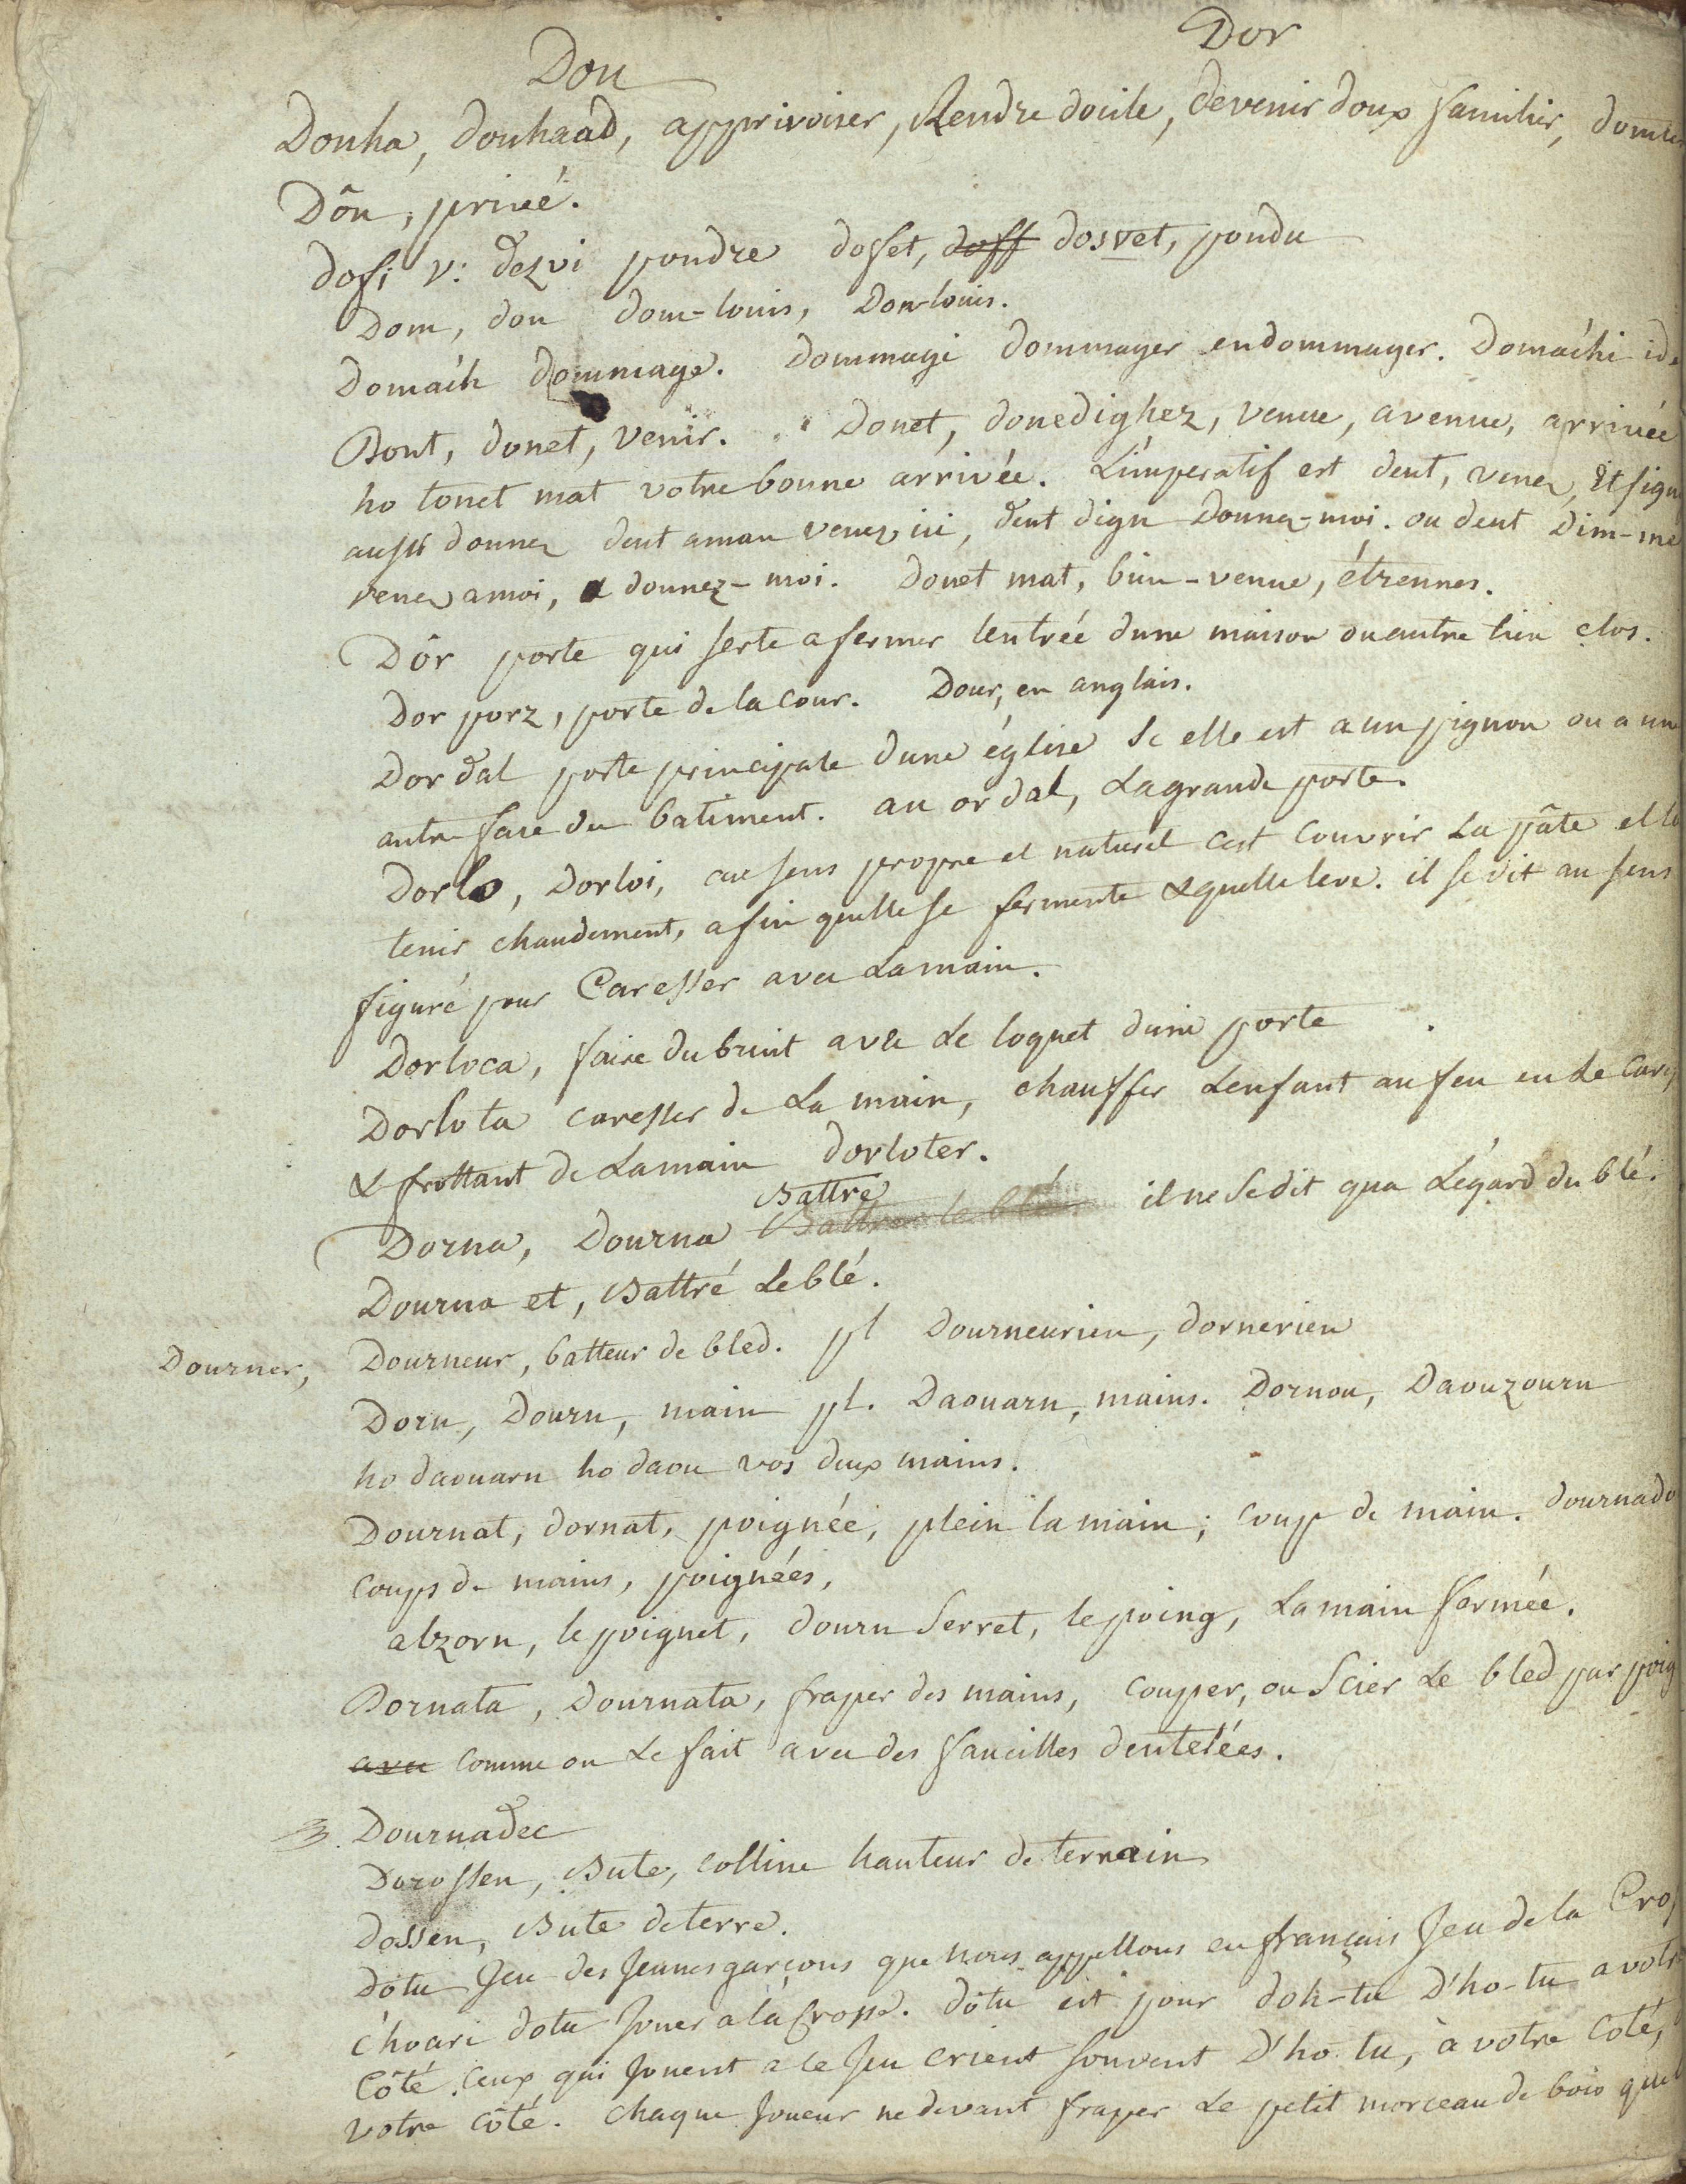 Don
Dor
Donha, donhaad, apprivoiser, Rendre docile, devenir doux familier,
Dôn, privé.
dofi v: dezvi pondre dofet, doff dosvet, pondu
Dom, don dom-louis, Don-louis.
Domaich dommage. dommagi dommager endommager. Domaichi id
Dont, donet, venir. Donet, donedighez, venue, avenue, arrivée
ho tonet mat votre bonne arrivée. L'imperatif est deut, venez, Et sign
aussi donnez deut aman venez ici, deut dign Donnez-moi. ou deut Dim-me
venez a moi, donnez-moi. Donet mat, bien-venue, étrennes.
Dôr porte qui serte a fermer lentrée dune maison ou autre lieu clos.
Dor porz, porte de la cour. Dour, en anglais.
Dor dal porte principale dune église Si elle est a un pignon ou a une
autre face du batiment. an or dal, La grande porte.
Dorlo, Dorloi, au sens propre et naturel cest couvrir La pâte et la
tenir chaudement, afin quelle se fermente & quelle leve. il se dit au sens
figuré pour Caresser avec La main.
Dorloca, faire du bruit avec Le loquet dune porte
Dorlota caresser de La main, chauffer Lenfant au feu en Le Cares
& frottant de La main dorloter.
Battre
Dorna, Dourna Battre le blé il ne Se dit qua Légard du blé.
Dourna et, Battré Le blé.
Dourner, Dourneur, batteur de bled. pl Dourneurien, dornerien
Dorn, Dourn, main pl. Daouarn, mains. Dornou, Daouzourn
ho daouarn ho daou vos deux mains.
Dournat, dornat, poignée, plein la main; coup de main. dournado
coups de mains, poignées,
alzorn, le poignet, dourn Serret, le poing, La main fermée.
Dornata, Dournata, fraper des mains, couper, ou Scier Le bled par poig
avec comme on Le fait avec des faucilles dentelées.
3. Dournadec
Dorossen, Bute, colline hauteur de terrain
Dossen, Bute de terre.
dotu Jeu des Jeunes garçons que nous appellons en français Jeu de la Cros
c'hoari dotu Jouer a la Crosse. dotu est pour doh-tu D'ho-tu a votre
Côté. Ceux qui Jouent a ce Jeu crient souvent D'ho tu, à votre Coté,
votre côté. Chaque Joueur ne devant fraper Le petit morceau de bois quel